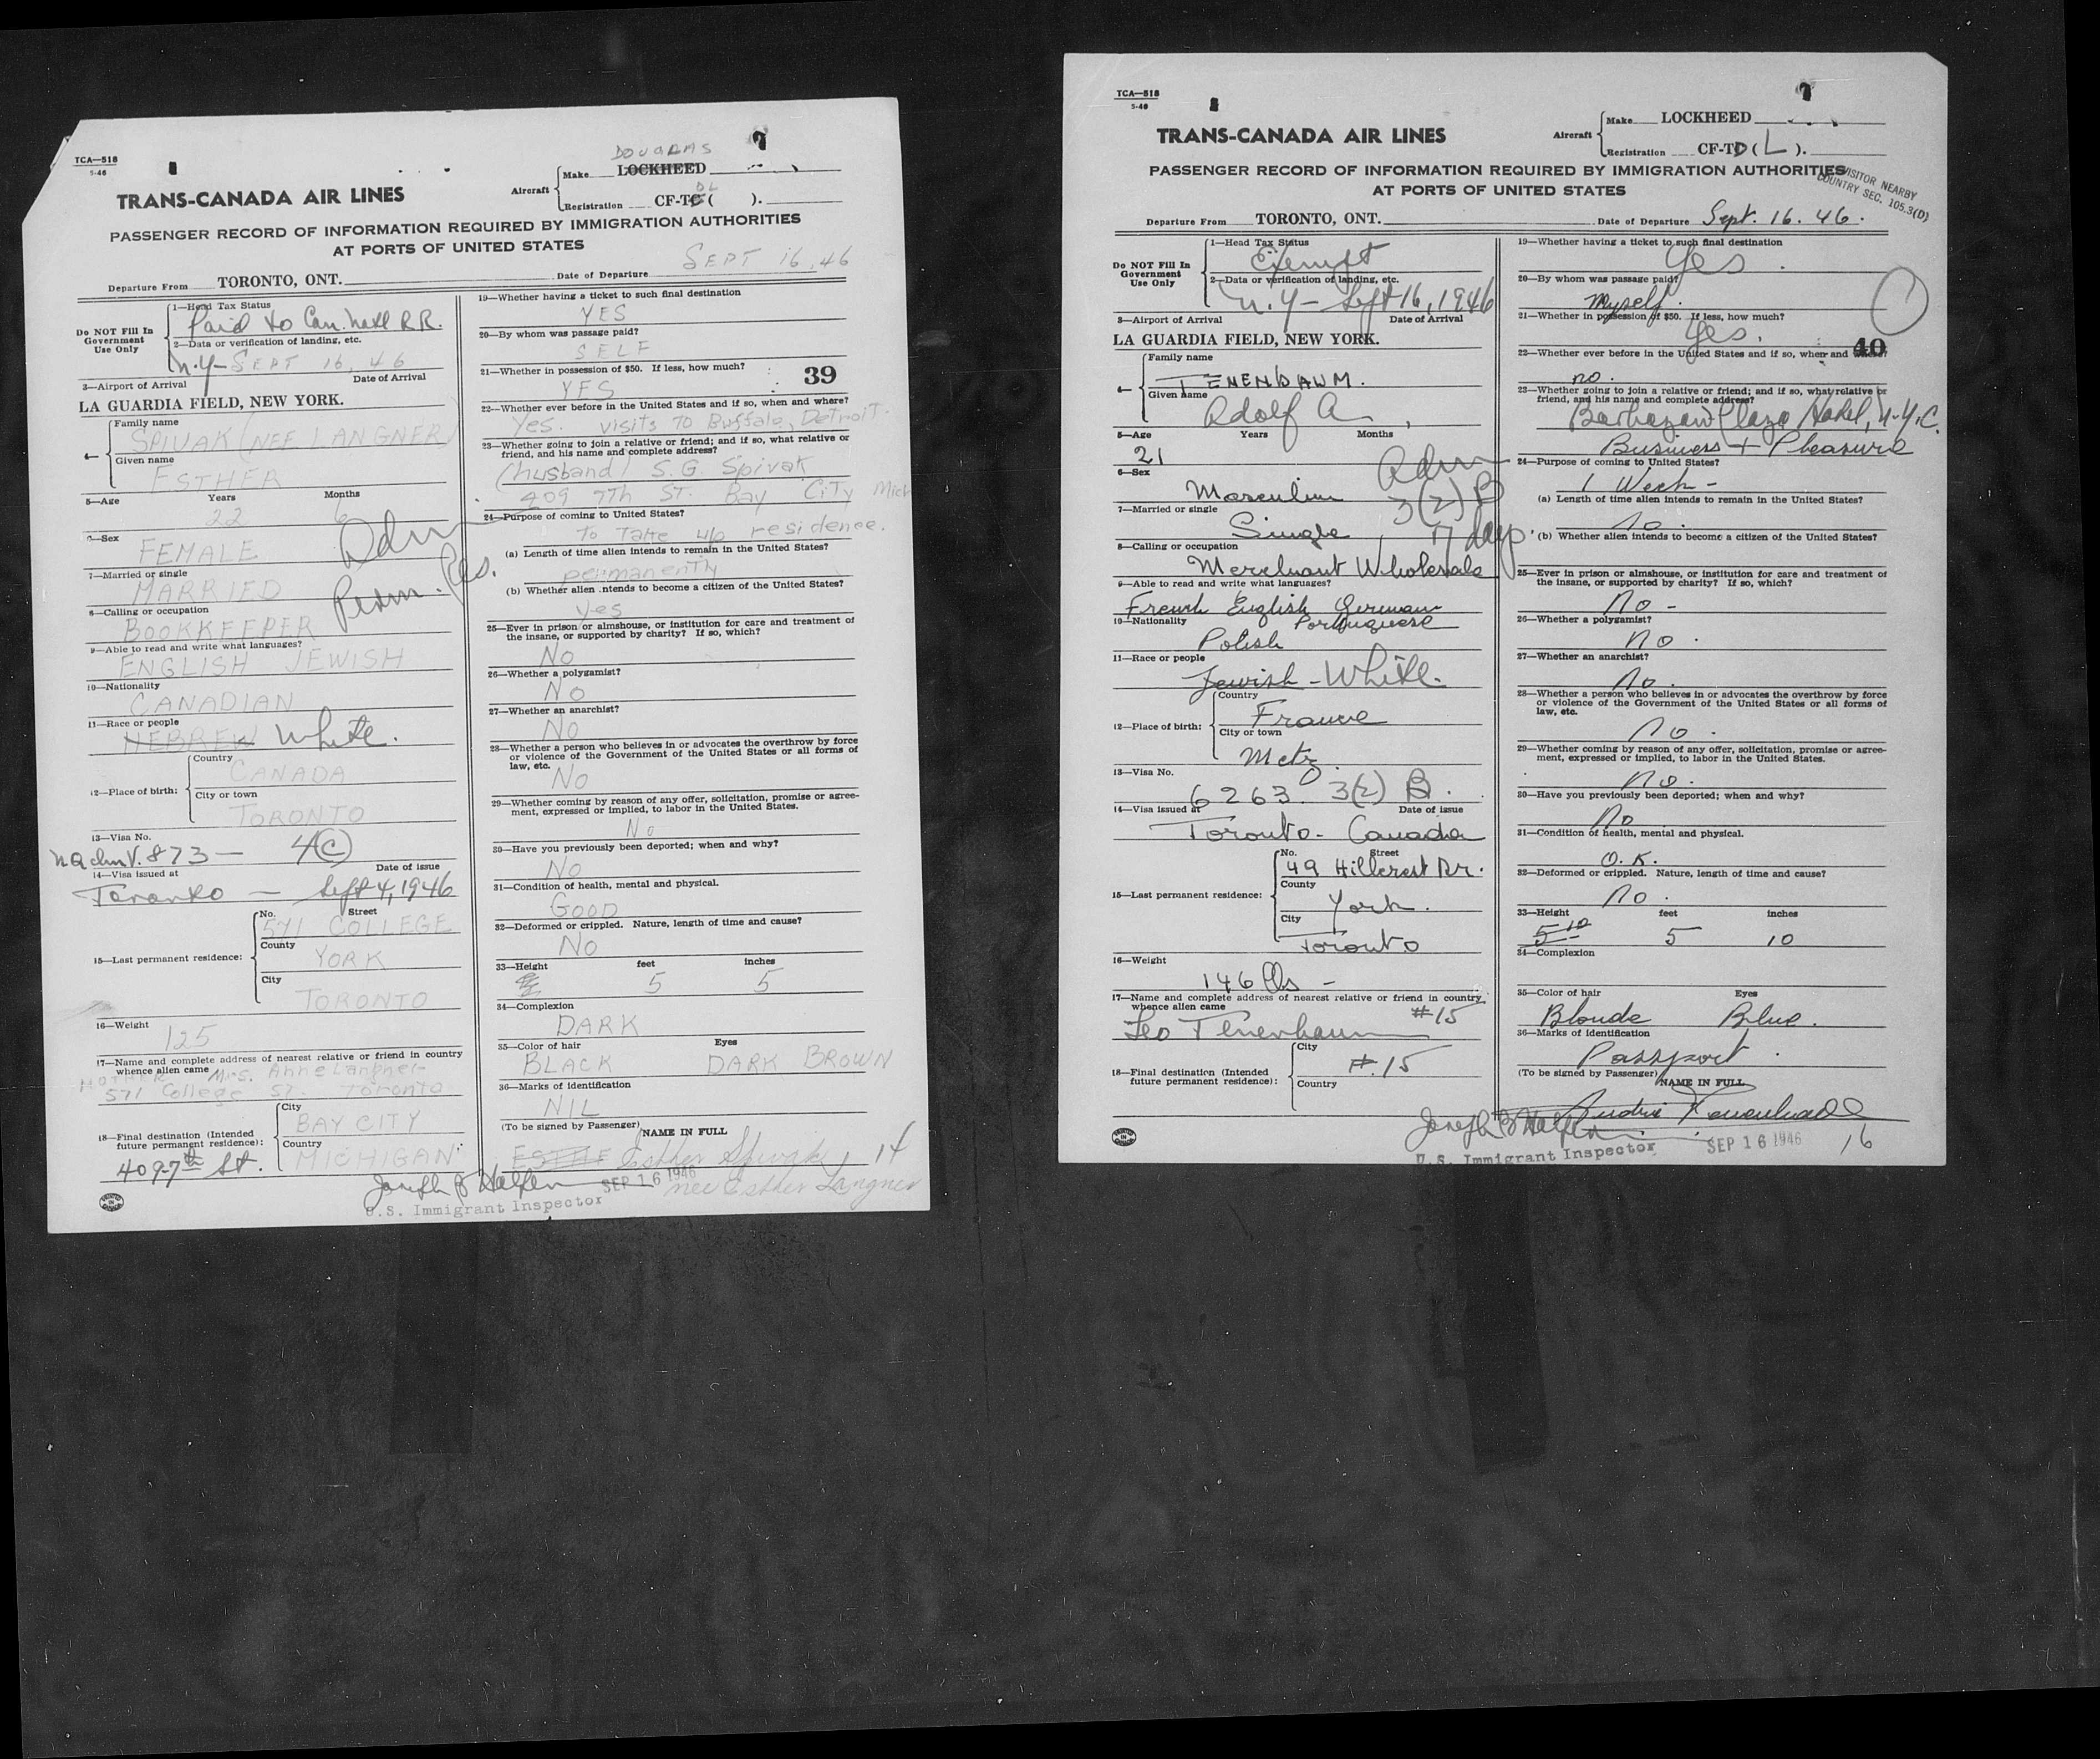 TCA—518
5-46
TRANS-CANADA AIR LINES
DOUGLAS
Aircraft
Make LOCKHEED
Registration CF-TC ( ).
DL
PASSENGER RECORD OF INFORMATION REQUIRED BY IMMIGRATION AUTHORITIES
AT PORTS OF UNITED STATES
Departure From TORONTO, ONT. Date of Departure SEPT 16, 46
Do NOT Fill In Government Use Only
1—Head Tax Status
Paid to Can. Natl R.R.
2—Data or verification of landing, etc.
N.Y— SEPT 16, 46
3—Airport of Arrival Date of Arrival
LA GUARDIA FIELD, NEW YORK.
4—
Family name
SPIVAK (NEE LANGNER)
Given name
ESTHER
5—Age Years Months
22 6
6—Sex
FEMALE
Adm
7—Married or single
MARRIED
Perm. Res.
8—Calling or occupation
BOOKKEEPER
9—Able to read and write what languages?
ENGLISH JEWISH
10—Nationality
CANADIAN
11—Race or people
HEBREW White.
12—Place of birth:
Country
CANADA
City or town
TORONTO
13—Visa No.
V. 873 — 4(C)
14—Visa issued at Date of issue
Toronto — Sept 4, 1946
15—Last permanent residence:
No. Street
571 COLLEGE
County
YORK
City
TORONTO
16—Weight
125
17—Name and complete address of nearest relative or friend in country
whence alien came
MOTHER Mrs. Anne Langner
571 College St Toronto
18—Final destination (Intended
future permanent residence):
City
BAY CITY
Country
MICHIGAN
409-7th St.
19—Whether having a ticket to such final destination
YES
20—By whom was passage paid?
SELF
21—Whether in possession of $50. If less, how much?
YES
39
22—Whether ever before in the United States and if so, when and where?
Yes. visits to Buffalo, Detroit.
23—Whether going to join a relative or friend; and if so, what relative or
friend, and his name and complete address?
(husband) S.G. Spivak
409 7th ST. Bay City Mich
24—Purpose of coming to United States?
To Take up residence.
(a) Length of time alien intends to remain in the United States?
permanently
(b) Whether alien intends to become a citizen of the United States?
Yes
25—Ever in prison or almshouse, or institution for care and treatment of
the insane, or supported by charity? If so, which?
No
26—Whether a polygamist?
No
27—Whether an anarchist?
No
28—Whether a person who believes in or advocates the overthrow by force
or violence of the Government of the United States or all forms of
law, etc.
No
29—Whether coming by reason of any offer, solicitation, promise or agree-
ment, expressed or implied, to labor in the United States.
No
30—Have you previously been deported; when and why?
No
31—Condition of health, mental and physical.
GOOD
32—Deformed or crippled. Nature, length of time and cause?
No
33—Height feet inches
5 5
34—Complexion
DARK
35—Color of hair Eyes
BLACK DARK BROWN
36—Marks of identification
NIL
(To be signed by Passenger) NAME IN FULL
Esther Spivak 14
nee Esther Langner
Joseph B Halpern SEP 16 1946
U.S. Immigrant Inspector
TCA—518
5-46
TRANS-CANADA AIR LINES
Aircraft
Make LOCKHEED
Registration CF-TD ( L ).
PASSENGER RECORD OF INFORMATION REQUIRED BY IMMIGRATION AUTHORITIES
AT PORTS OF UNITED STATES
VISITOR NEARBY
COUNTRY SEC. 105.3(D)
Departure From TORONTO, ONT. Date of Departure Sept. 16. 46.
Do NOT Fill In Government Use Only
1—Head Tax Status
Exempt
2—Data or verification of landing, etc.
N.Y— Sept 16, 1946
3—Airport of Arrival Date of Arrival
LA GUARDIA FIELD, NEW YORK.
4—
Family name
TENENBAUM.
Given name
Adolf A
5—Age Years Months
21
6—Sex
Masculin
Adm
3(2) B
7—Married or single
Single
7 days.
8—Calling or occupation
Merchant Wholesale
9—Able to read and write what languages?
French English German
Portuguese
10—Nationality
Polish
11—Race or people
Jewish - White.
12—Place of birth:
Country
France
City or town
Metz
13—Visa No.
6263. 3(2) B.
14—Visa issued at Date of issue
Toronto - Canada
15—Last permanent residence:
No. Street
49 Hillcrest Dr.
County
York.
City
Toronto
16—Weight
146 lbs -
17—Name and complete address of nearest relative or friend in country
whence alien came
#15
Leo Tenenbaum
18—Final destination (Intended
future permanent residence):
City
#.15
Country
19—Whether having a ticket to such final destination
Yes.
20—By whom was passage paid?
Myself.
21—Whether in possession of $50. If less, how much?
Yes.
40
22—Whether ever before in the United States and if so, when and where?
no.
23—Whether going to join a relative or friend; and if so, what relative or
friend, and his name and complete address?
Barbazan Plaza Hotel, N.Y.C.
Business + Pleasure
24—Purpose of coming to United States?
1 Week -
(a) Length of time alien intends to remain in the United States?
no.
(b) Whether alien intends to become a citizen of the United States?
25—Ever in prison or almshouse, or institution for care and treatment of
the insane, or supported by charity? If so, which?
no -
26—Whether a polygamist?
no.
27—Whether an anarchist?
no.
28—Whether a person who believes in or advocates the overthrow by force
or violence of the Government of the United States or all forms of
law, etc.
no.
29—Whether coming by reason of any offer, solicitation, promise or agree-
ment, expressed or implied, to labor in the United States.
no.
30—Have you previously been deported; when and why?
No
31—Condition of health, mental and physical.
O.K.
32—Deformed or crippled. Nature, length of time and cause?
no.
33—Height feet inches
5 10 5 10
34—Complexion
35—Color of hair Eyes
Blonde Blue.
36—Marks of identification
Passport.
(To be signed by Passenger) NAME IN FULL
Joseph B Halpern
U.S. Immigrant Inspector SEP 16 1946 16